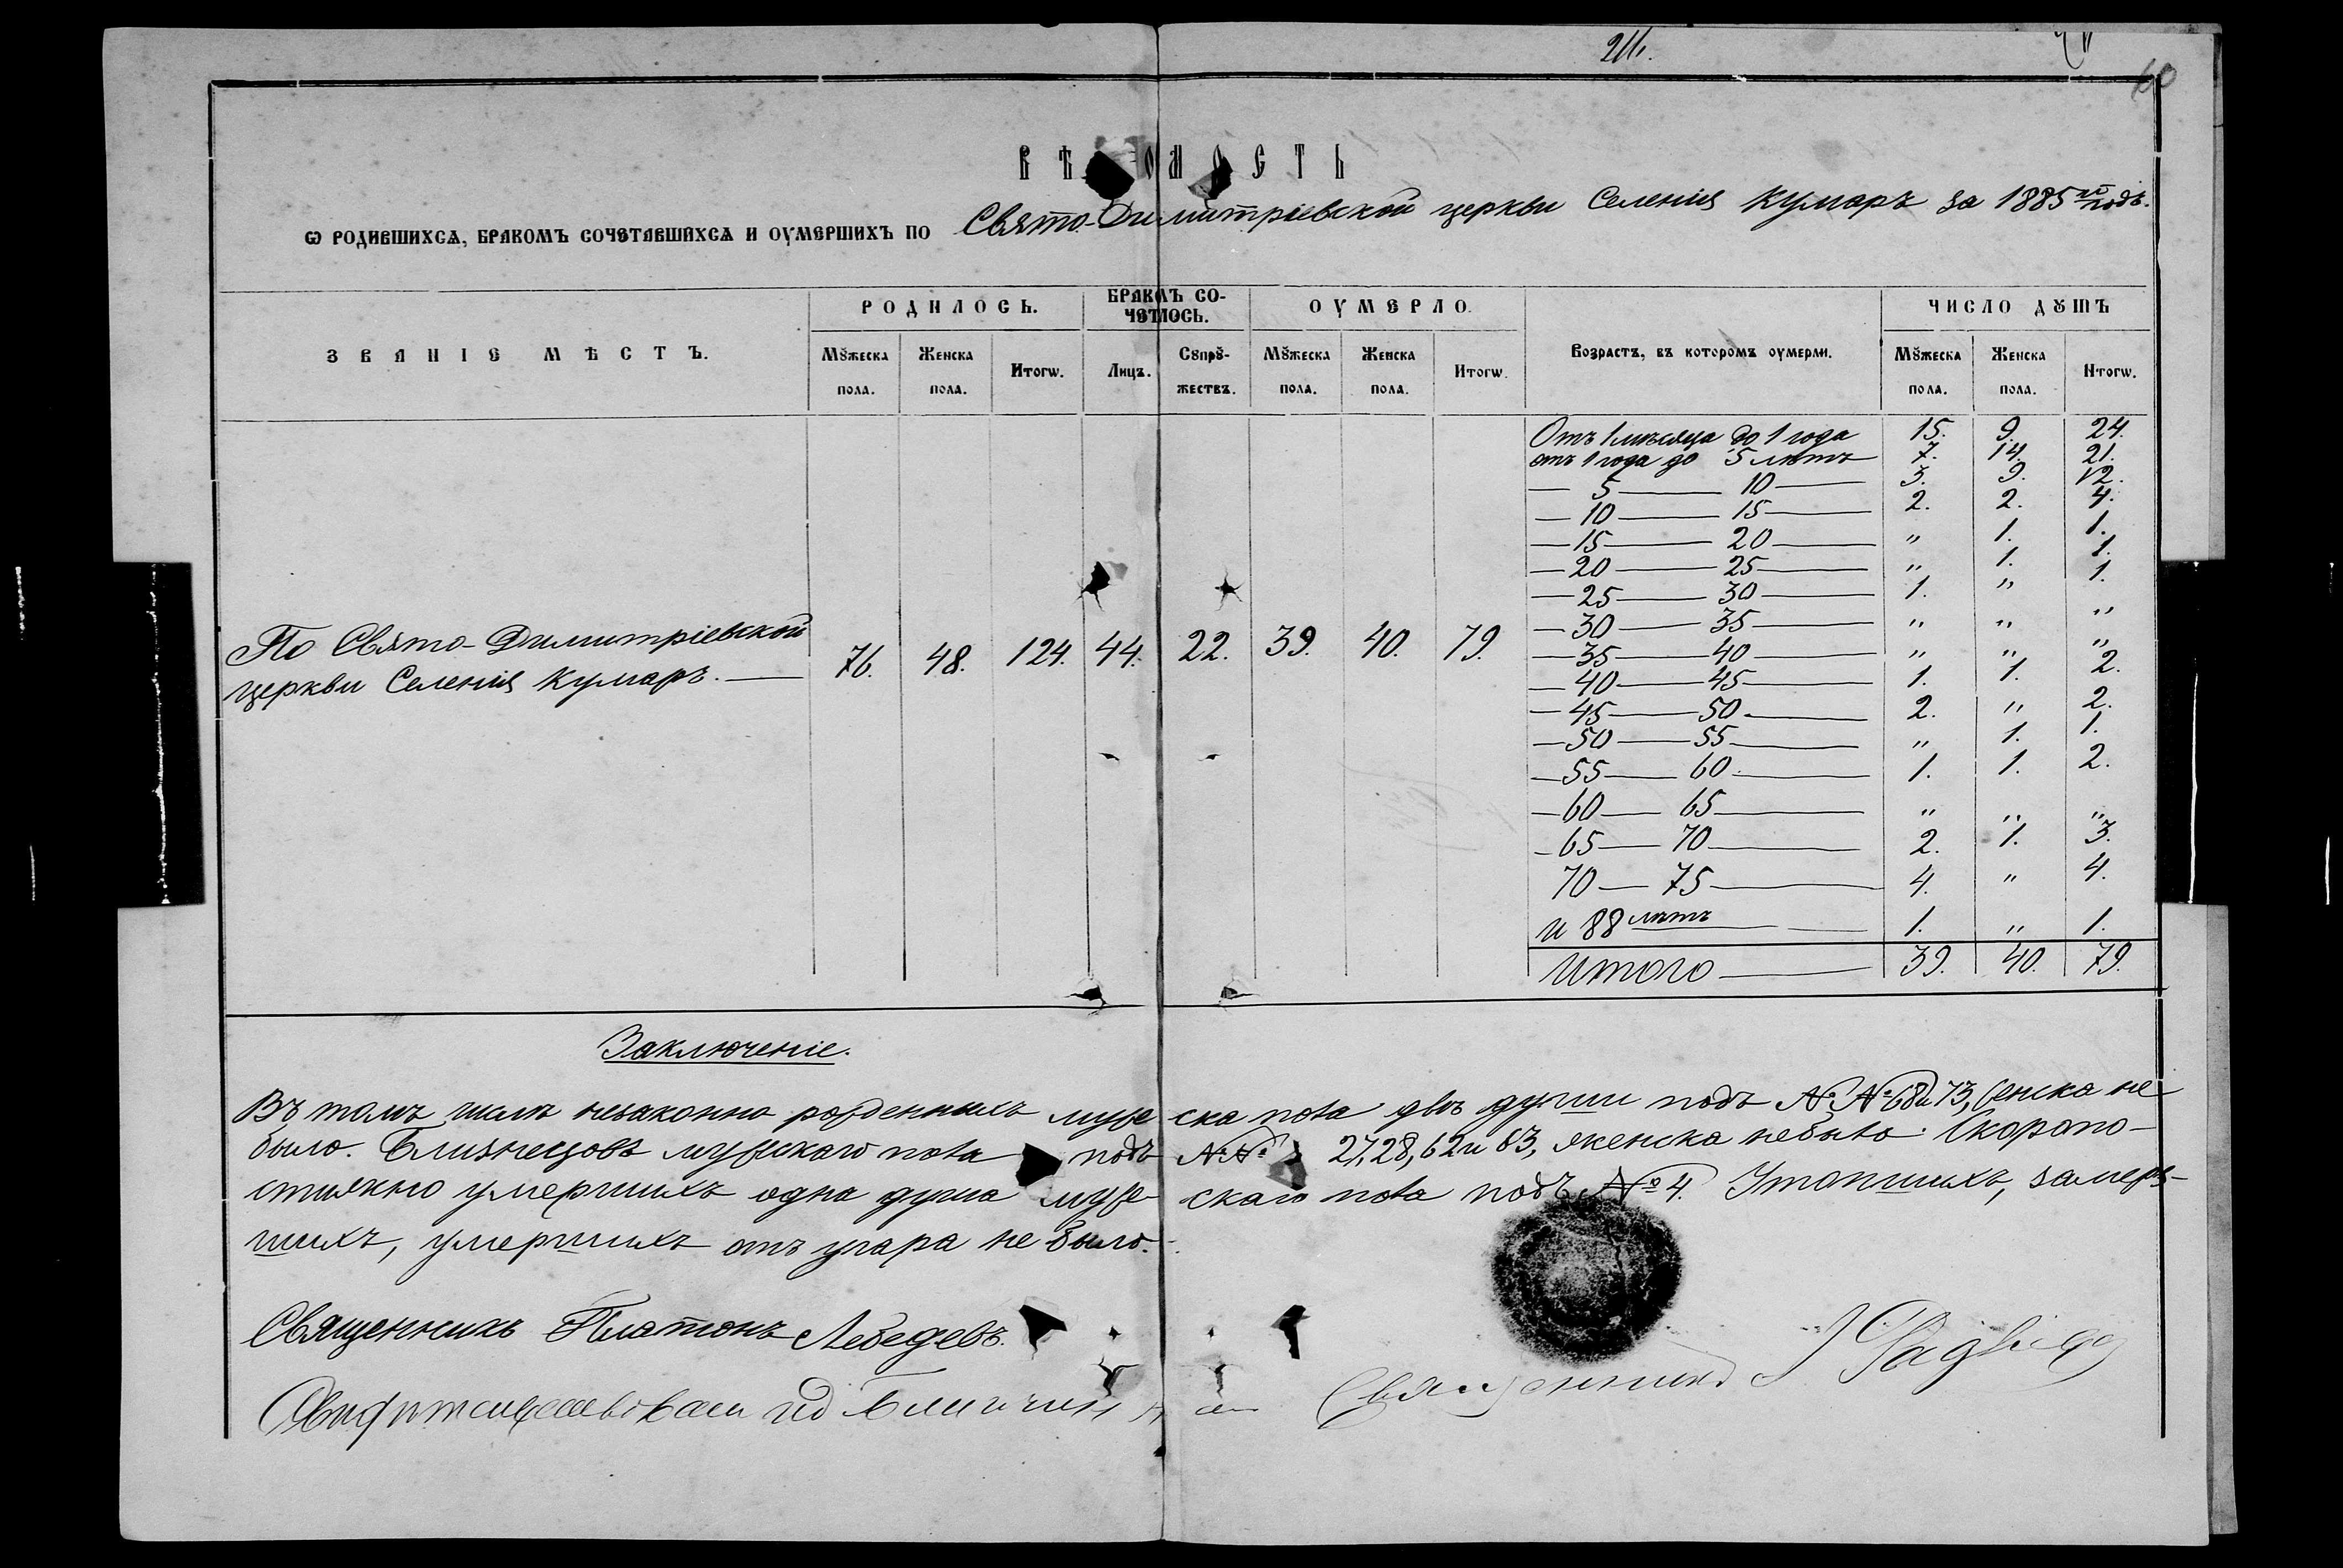 211.
60
ВѢ ОМОСТЬ
Ѡ РОДИВШИХСѦ, БРАКОМЪ СОЧЕТАВШИХСѦ И ОУМЕРШИХЪ ПО Свято-Димитріевской церкви Селенія Кумаръ за 1885й годъ.
ЗВАНІЕ МѢСТЪ.
РОДИЛОСЬ.
БРАКОМЪ СО-
ЧЕТЛОСЬ.
ОУМЕРЛО.
Возрастъ, въ которомъ оумерли.
ЧИСЛО ДꙊШЪ
Мꙋжеска пола. Женска пола. Итогѡ. Лицъ. Сꙋпрꙋ-жествъ. Мꙋжеска пола. Женска пола. Итогѡ. Мꙋжеска пола. Женска пола. Итогѡ.
Отъ 1 мѣсяца до 1 года 15. 9. 24.
отъ 1 года до 5 лѣтъ 7. 14. 21.
— 5 — 10 — 3. 9. 12.
— 10 — 15 — 2. 2. 4.
— 15 — 20 — " 1. 1.
— 20 — 25 — " 1. 1.
— 25 — 30 — 1. " 1.
— 30 — 35 — " " "
— 35 — 40 — " " "
— 40 — 45 — 1. 1. 2.
— 45 — 50 — 2. " 2.
— 50 — 55 — " 1. 1.
— 55 — 60 — 1. 1. 2.
— 60 — 65 — " " "
— 65 — 70 — 2. 1. 3.
70 — 75 — 4. " 4.
и 88 лѣтъ — 1. " 1.
Итого — 39. 40. 79.
По Свято-Димитріевской
церкви Селенія Кумаръ. — 76. 48. 124. 44. 22. 39. 40. 79.
Заключеніе.
Въ томъ числѣ незаконно рожденныхъ муже ска пола двѣ души подъ №№ 68 и 73, женска не
было. Близнецовъ мужскаго пола подъ №№ 27, 28, 62 и 63, женска не было. Скоропо-
стижно умершихъ одна душа муже- скаго пола подъ № 4. Утопшихъ, замерз-
шихъ, умершихъ отъ угара не было.
Священникъ Платонъ Лебедевъ.
Священникъ